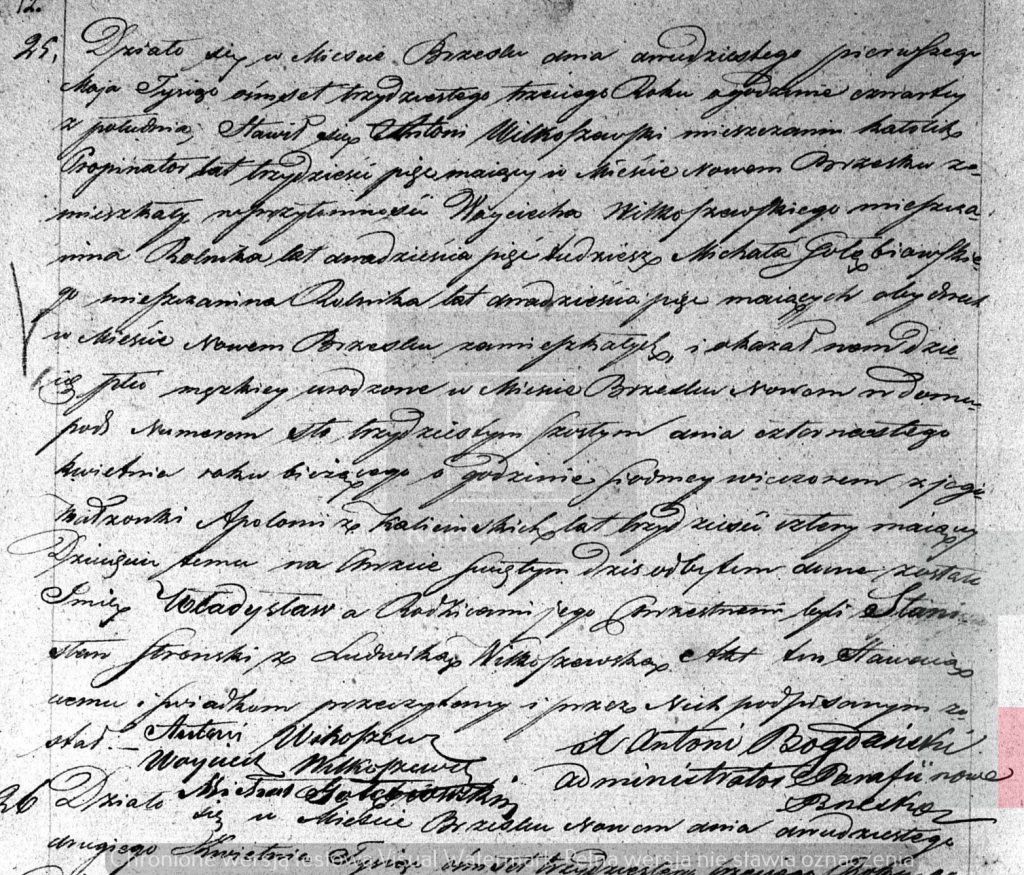 12.
25. Działo się w Mieście Brzesku dnia dwudziestego pierwszego
Maja Tysiąc ośmset trzydziestego trzeciego Roku o godzinie czwartey
z południa, Stawił się Antoni Wilkoszewski mieszczanin katolik
Propinator lat trzydzieści pięć maiący w Mieście Nowem Brzesku za-
mieszkały, w przytomności Woyciecha Wilkoszewskiego mieszcza-
nina Rolnika lat dwadzieścia pięć tudzież Michała Gołębiowskie-
go mieszczanina Rolnika lat dwadzieścia pięć maiących obydwuch
w Mieście Nowem Brzesku zamieszkałych, i okazał nam dzie
cię płci męzkiey urodzone w Mieście Brzesku Nowem w domu
pod Numerem sto trzydziestym szostym dnia czternastego
kwietnia roku bieżącego o godzinie siodmey wieczorem z jego
Małżonki Apolonii z Kalicinskich lat trzydzieści cztery maiący
Dziecięciu temu na Chrzcie świętym dziś odbytem dane zostało
Imie Władysław a Rodzicami jego Chrzestnemi byli Stani
sław Stronski z Ludwiką Wilkoszewską Akt ten Stawaią
cemu i świadkom przeczytany i przez Nich podpisanym zo-
stał. — Antoni Wilkoszew X Antoni Bogdański
Woyciech Wilkoszewski administrator Parafii nowo
Michał Gołębiowski Brzeska
26 Działo się w Mieście Brzesku Nowem dnia dwudziestego
drugiego Kwietnia Tysiąc ośmset trzydziestego trzeciego Roku
Chronione wersją testową Visual Watermark. Pełna wersja nie stawia oznaczenia.